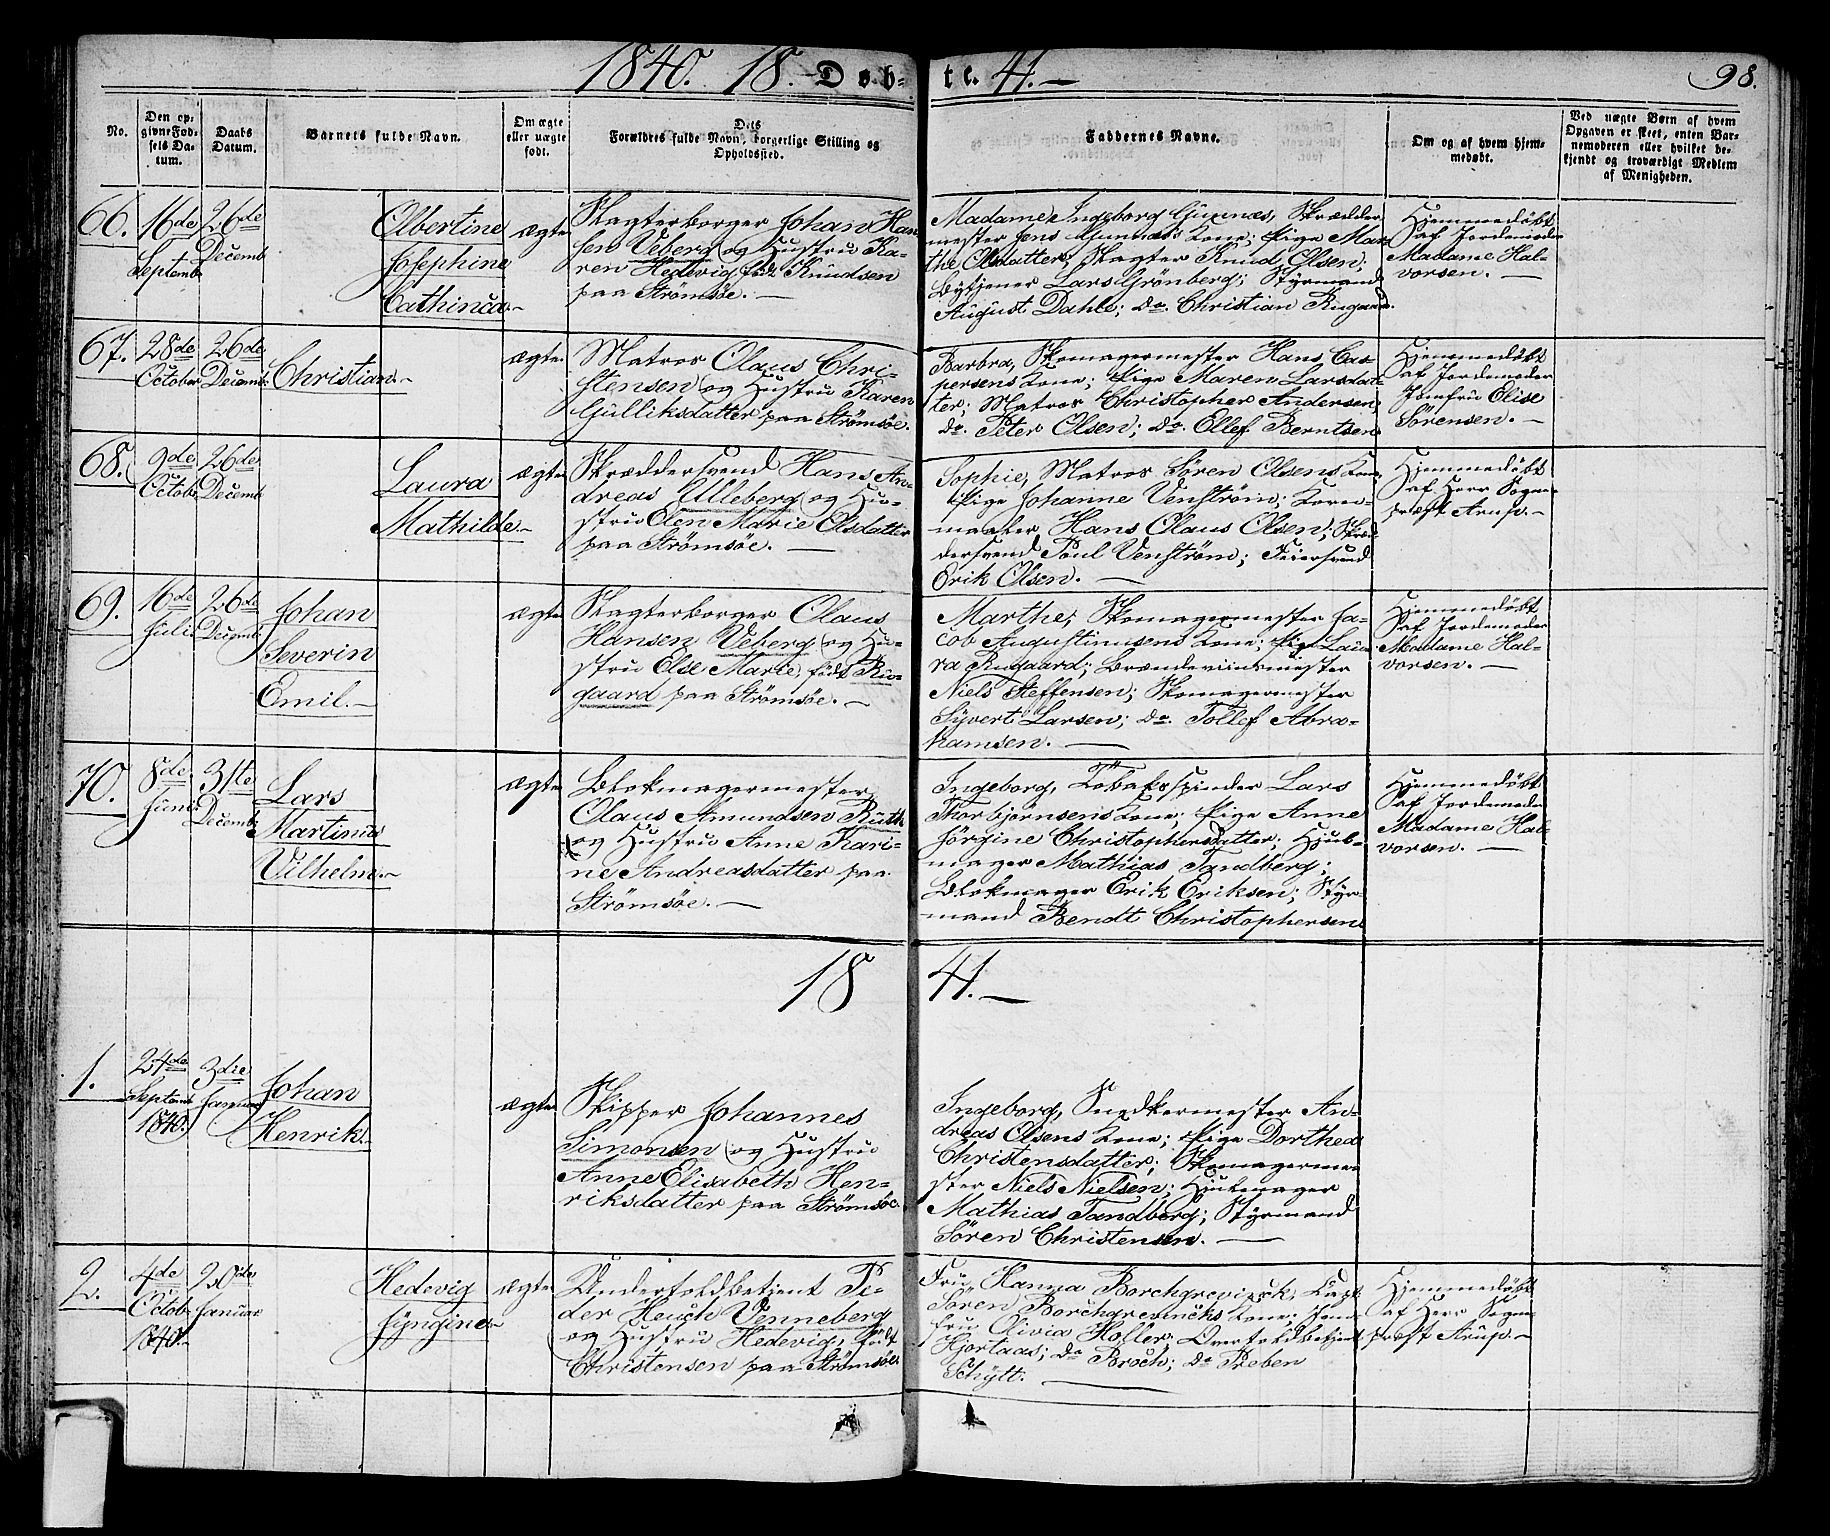 1840. 18 Døb- te 41.
98.
No.
Den op-
givne Fød-
sels Da-
tum.
Daabs
Datum.
Barnets fulde Navn.
Om ægte
eller uægte
født.
Dets
Forældres fulde Navn, borgerlige Stilling og
Opholdssted.
Faddernes Navne.
Om og af hvem hjem-
medøbt.
Ved uægte Børn af hvem
Opgaven er skeet, enten Bar-
nemoderen eller hvilket be-
kjendt og troværdigt Medlem
af Menigheden.
66.
16de
Septemb
26de
Decemb
Olbertine
Josephine
Cathinca
ægte
Slagterborger Johan Han-
sen Veberg og Hustru Ka-
ren Hedevig föd Knudsen
paa Strömsöe.
Madame Ingeborg Gunnæs, Skrædder
mester Jens Gunnæs Kone; Pige Mar-
the Olsdatter; Slagter Knud Olsen;
Bytjener Lars Grönberg; Styrmand
August Dahle; Do. Christian Rugaard
Hjemmedöbt
af Jordemoder
Madame Hal-
vorsen.
67.
28de
October
26de
Decemb
Christian
ægte
Matros Claus Chri-
stensen og Hustru Karen
Gulliksdatter paa Strömsöe.
Barbra, Skomagermester Hans Cas-
persens Kone; Pige Maren Larsdat-
ter; Matros Christopher Andersen;
Do. Peter Olsen; Do. Ollef Berntsen
Hjemmedöbt
af Jordemoder
Jomfru Elise
Sörensen.
68.
9de
Octobr
26de
Decemb
Laura
Mathilde
ægte
Skræddersvend Hans An-
dreas Ulleberg og Hu-
stru Elen Marie Olsdatter
paa Strömsöe.
Sophie, Matros Sören Olsens Kone
Pige Johanne Venström; Koren-
maaler Hans Claus Olsen; Skræd-
dersvend Poul Venström; Feiersvend
Erik Olsen.
Hjemmedöbt
af Herr Sogne-
præst Arup.
69.
16de
Juli
26de
Decemb
Johan
Severin
Emil.
ægte
Slagterborger Claus
Hansen Veberg og Hu-
stru Else Marie, födt Ru-
gaard paa Strömsöe.
Marthe, Skomagermester Ja-
cob Augustinusens Kone; Pige Lau-
ra Rugaard; Brændeviinsmester
Niels Steffensen; Skomagermester
Syvert Larsen; Do. Tollef Abra-
hamsen.
Hjemmedöbt
af Jordemoder
Madame Hal-
vorsen.
70.
8de
Juni
31te
Decemb
Lars
Martinus
Vilhelm.
ægte
Blokmagermester
Claus Amundsen Ruth
og Hustru Anne Kari-
ne Andreasdatter paa
Strömsöe.
Ingeborg, Tobaksspinder Lars
Thorbjörnsens Kone; Pige Anne
Jörgine Christophersdatter; Hjul-
mager Mathias Tandberg;
Blokmager Erik Eriksen; Styr-
mand Bendt Christophersen
Hjemmedöbt
af Jordemoder
Madame Hal-
vorsen.
18 41.
1.
24de
Septemb
1840.
3die
Januar
Johan
Henrik.
ægte
Skipper Johannes
Simonsen og Hustru
Anne Elisabeth Hen-
riksdatter paa Strömsöe.
Ingeborg, Snedkermester An-
dreas Olsens Kone; Pige Dorthea
Christensdatter; Skomagerme-
ster Niels Nielsen; Hjulmager
Mathias Tandberg; Styrmand
Sören Christensen.
2.
4de
Octob
1840.
20de
Januar
Hedevig
Jyngine
ægte
Undertoldbetjent Pe-
der Heuch Venneberg
og Hustru Hedevig, födt
Christensen paa Strömsöe
Fru Hanna Borchgrevinck, Capt.
Sören Borchgrevincks Kone; Jom-
fru Olivia Holler; Overtoldbetjent
Hjortaas; Do Broch; Do Preben
Schytt.
Hjemmedöbt
af Herr Sogne
præst Arup.